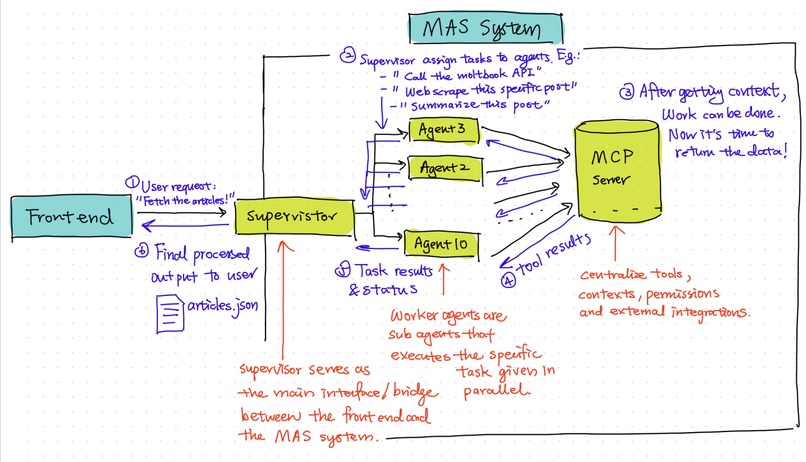 MAS System
② Supervisor assign tasks to agents. Eg.:
- "Call the moltbook API"
- "Web scrape this specific post"
- "Summarize this post"
③ After getting context,
Work can be done.
Now it's time to
return the data!
Agent 3
Agent 2
MCP
server
① User request:
"Fetch the articles!"
Frontend
Supervistor
Agent 10
⑥ Final processed
output to user
articles.json
⑤ Task results
& status
④ tool results
centralize tools,
contexts, permissions
and external integrations.
Worker agents are
sub agents that
executes the specific
task given in
parallel.
supervisor serves as
the main interface/bridge
between the frontend and
the MAS system.